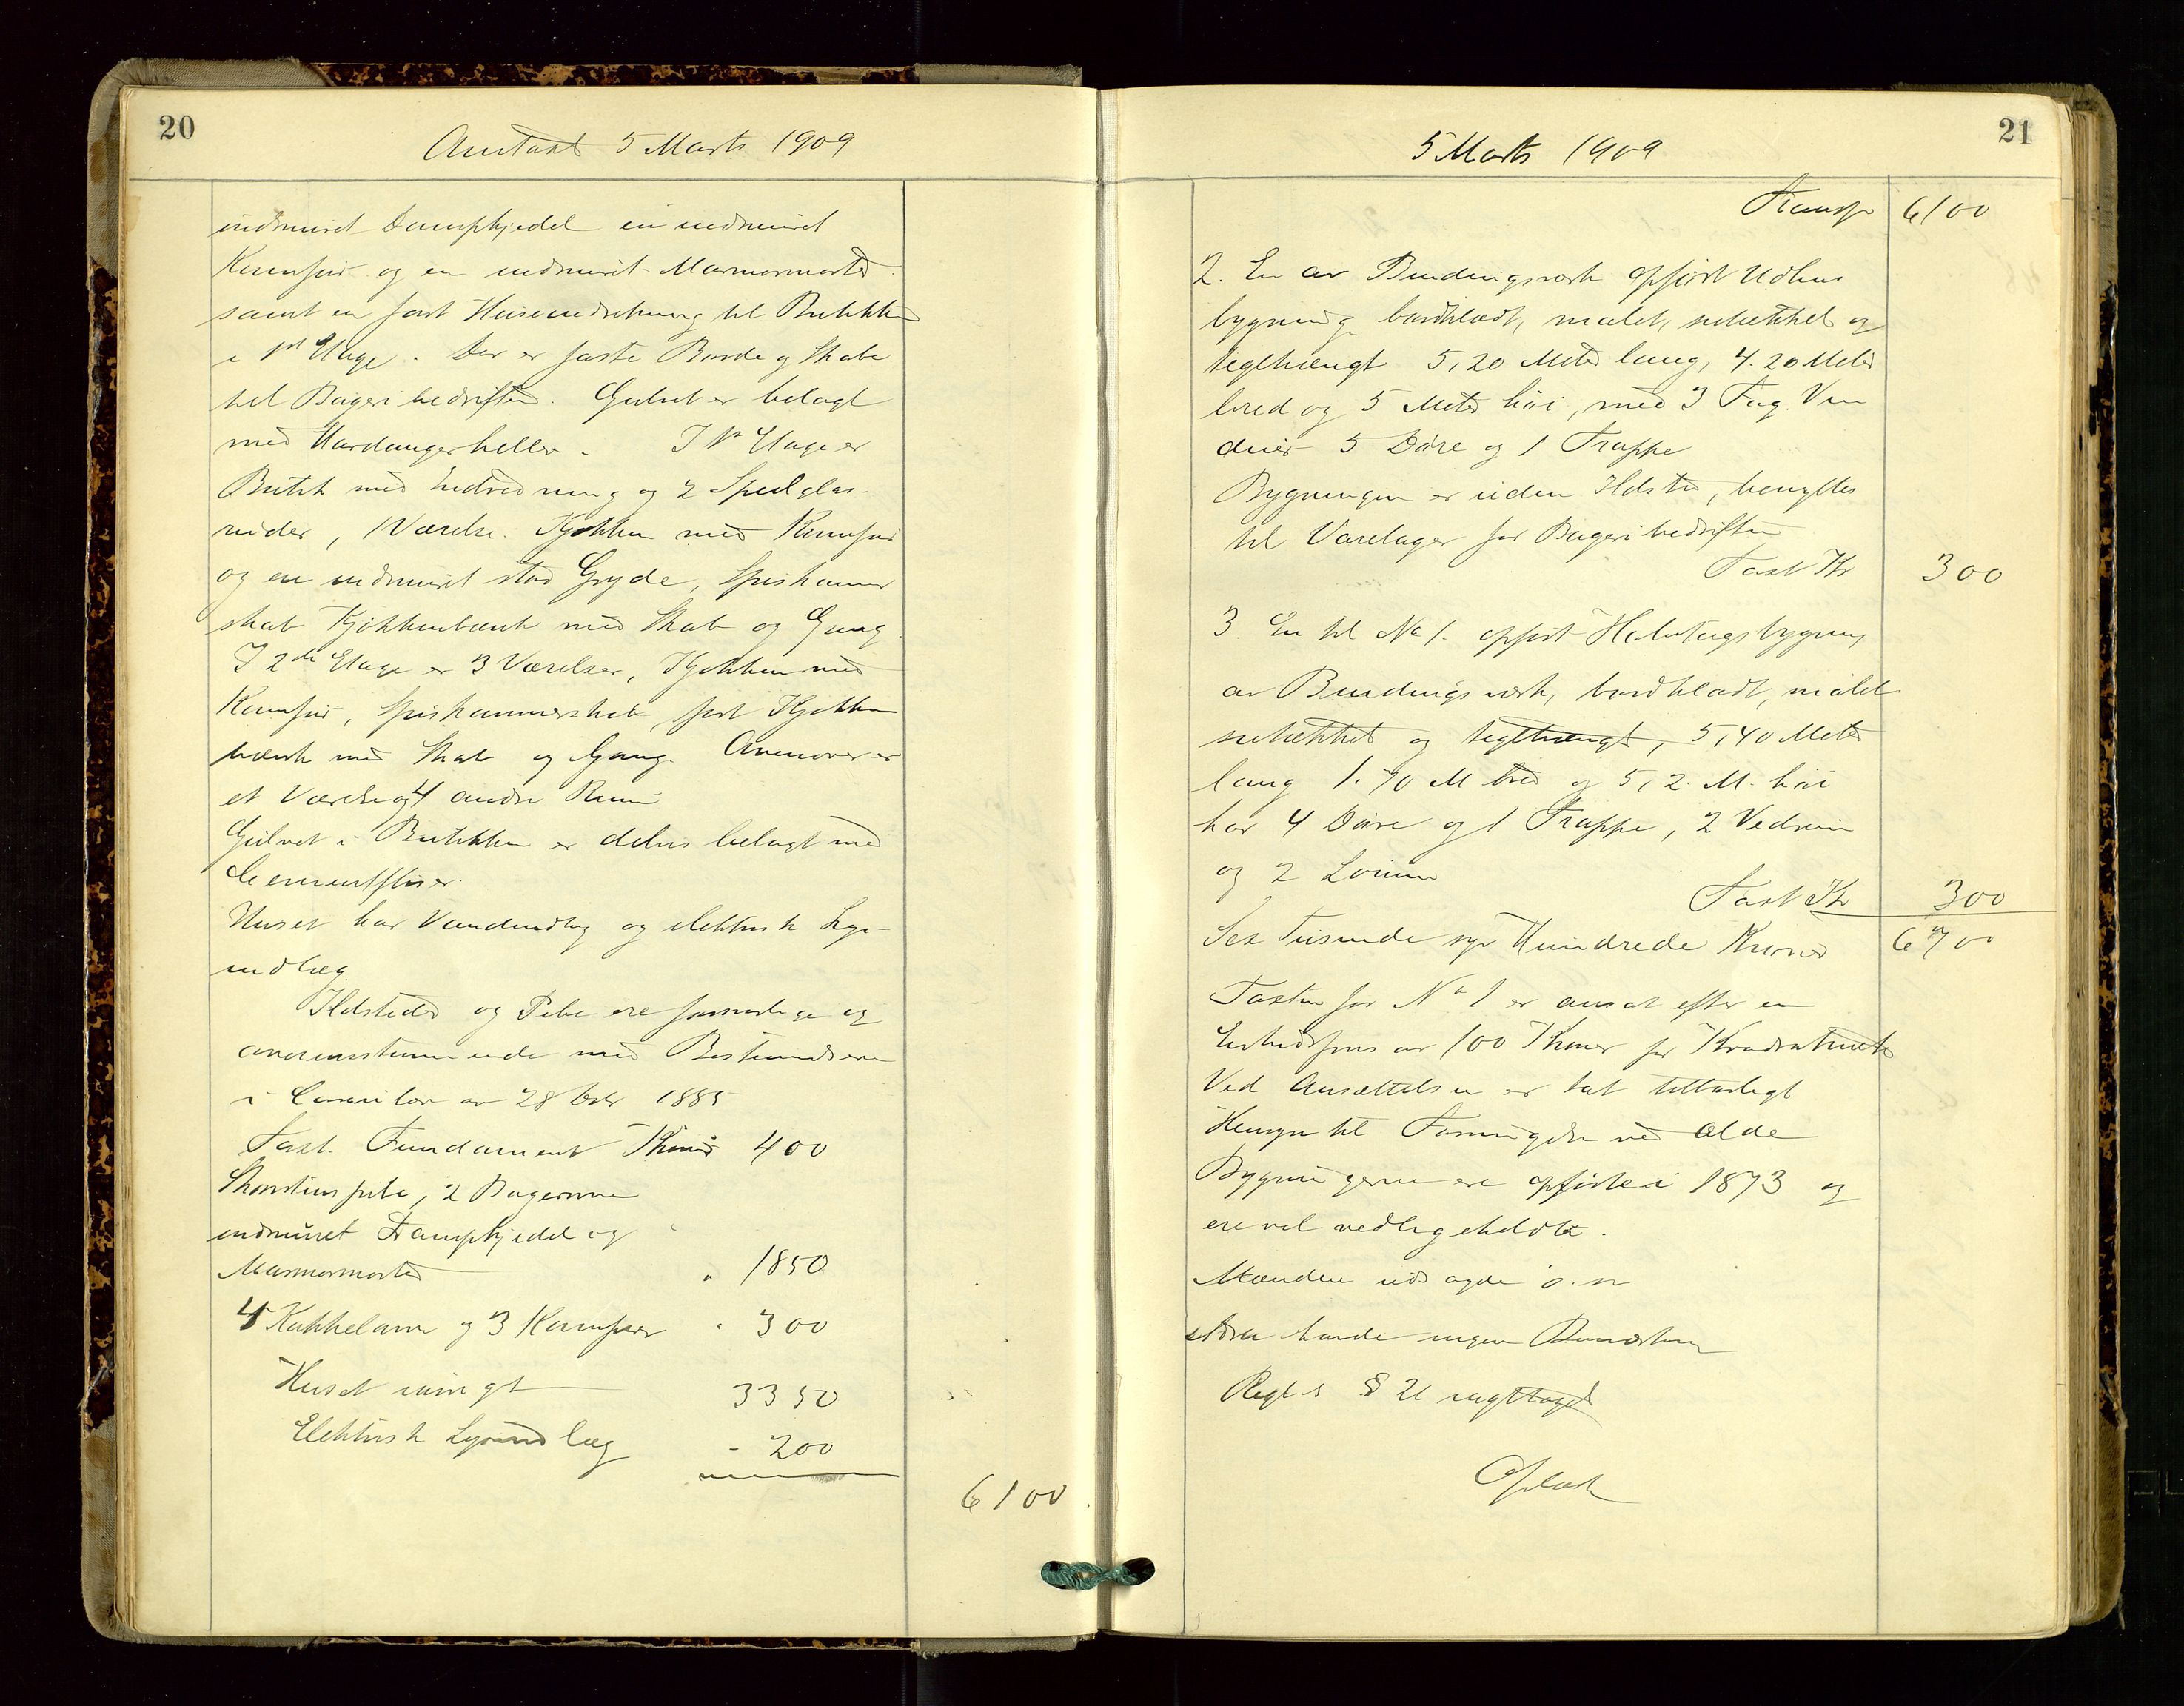 20
Omtaxt 5 Marts 1909
indmuret Dampkjedel en indmuret
Komfur og en indmuret Marmormorter
samt en fast Huseindretning til Butikken
i 1st Etage. Der er faste Borde og Skabe
til Bageribedriften. Gulvet er belagt
med Hardangerheller. I 1st Etage er
Butik med Indredning og 2 Speilglas-
ruder, 1 Værelse. Kjøkken med Komfur
og en indmuret stor Gryde, Spiskammer
skab Kjøkkenbænk med Skab og Gang
I 2den Etage er 3 Værelser, Kjøkken med
Komfur, Spiskammerskab, fast Kjøkken
bænk med Skab og Gang. Ovenover er
et Værelse og 4 andre Rum
Gulvet i Butikken er delvis belagt med
Cementfliser.
Huset har Vandindlæg og elektrisk Lys-
indlæg.
Ildsteder og Pibe ere forsvarlige og
overensstemmende med Bestemmelserne
i Loven av 28 1885
Taxt. Fundament Kroner 400
Skorstenspibe, 2 Bagerovne
indmuret Dampkjedel og
Marmormorter " 1850
4 Kakkelovne og 3 Komfurer " 300
Huset øvrigt 3350
Elektrisk Lysindlæg - 200
6100
21
5 Marts 1909
Transp 6100
2. En av Bindingsverk opført Udhus
bygning, bordklædt, malet, sutekket og
teglhængt 5,20 Meter lang, 4.20 Meter
bred og 5 Meter høi, med 3 Fag Vin
duer 5 Døre og 1 Trappe
Bygningen er uden Ildsted, benyttes
til Varelager for Bageribedriften
Taxt Kr 300
3. En til No 1. opført Halvtagsbygning
av Bindingsverk, bordklædt, malet
sutekket og teglhængt, 5,40 Meter
lang 1.70 M bred og 5,2. M. høi
har 4 Døre og 1 Trappe, 2 Vedrum
og 2
Taxt Kr 300
Sex Tusinde syv Hundrede Kroner 6700
Taxten for No 1 er ansat efter en
Enhedspris av 100 Kroner pr Kvadratmeter
Ved Ansættelsen er tat tilbørligt
Hensyn til Forringelse ved Ælde
Bygningerne ere opførte i 1873 og
ere vel vedligeholdte.
Mændene udsagde o. sv
havde ingen Bemærkning
Regl-s § 21 iagttaget
Oplæst